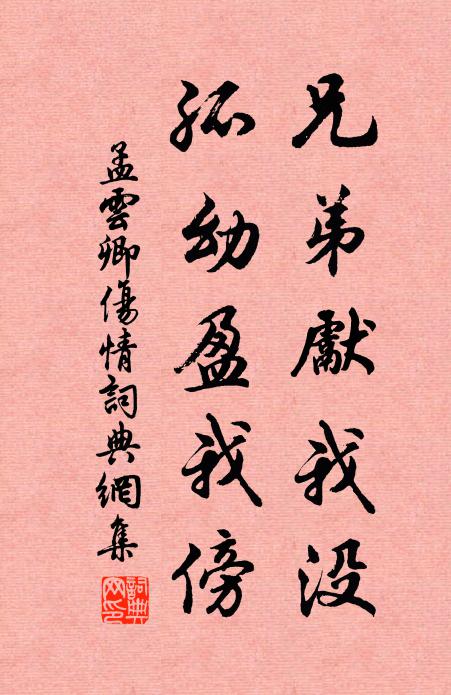 兄弟獻我没
孤幼盈我傍
孟雲卿傷情詞典網集